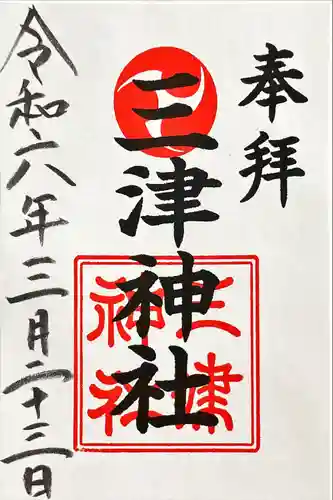 奉拝
三津神社
三津
神社
令和六年三月二十三日